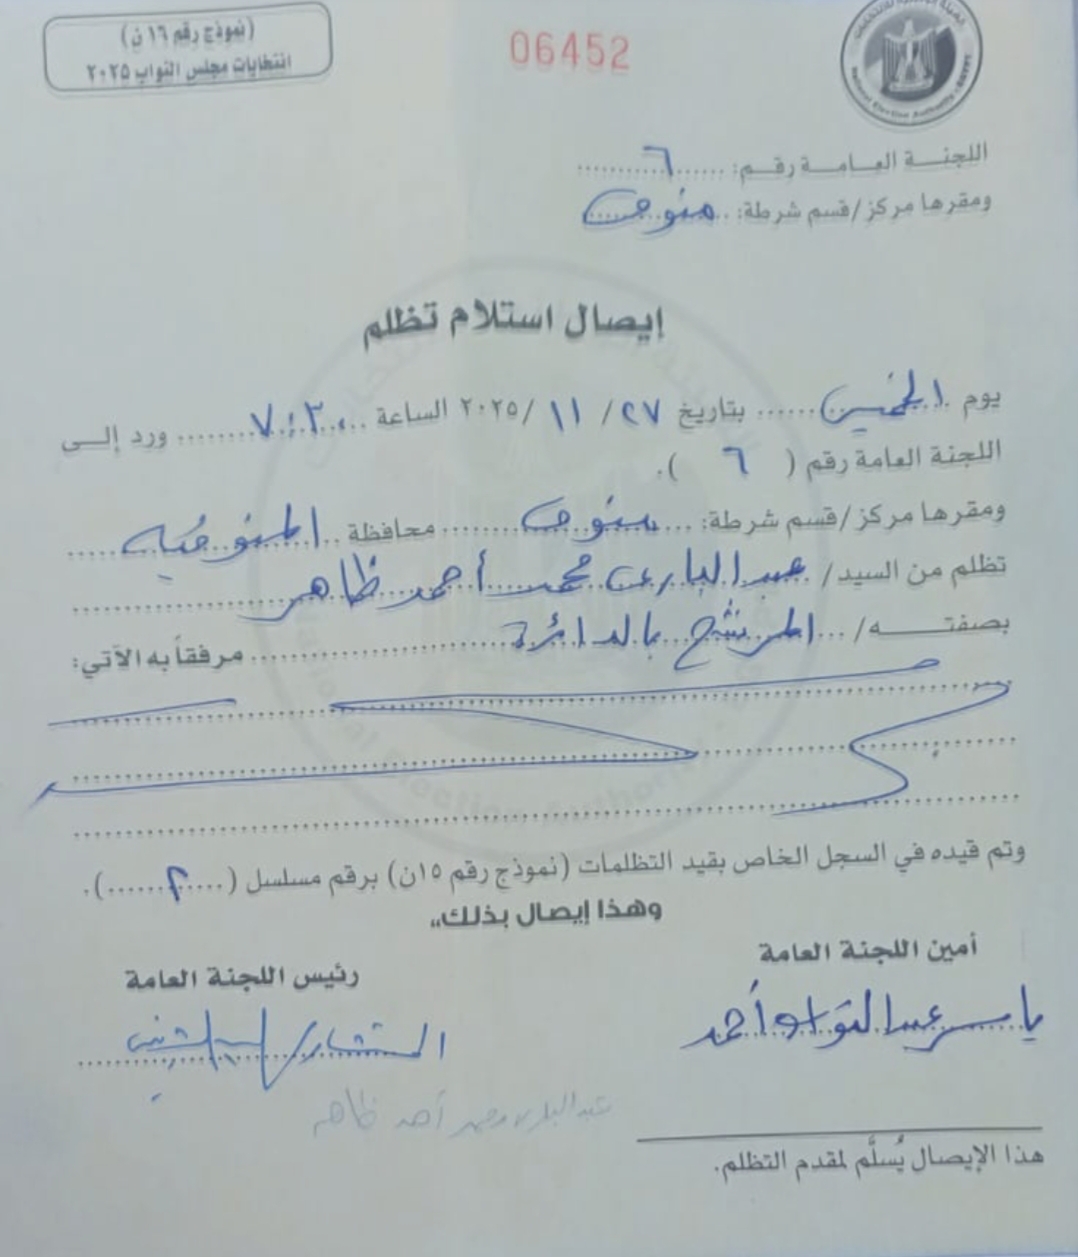 (نموذج رقم ١٦ ن)
انتخابات مجلس النواب ٢٠٢٥
06452
National Election Authority
اللجنة العامة رقم: ٦
ومقرها مركز/قسم شرطة: منوف
إيصال استلام تظلم
يوم الخميس بتاريخ ٢٧/ ١١ /٢٠٢٥ الساعة ٧:٣٠ ورد إلى
اللجنة العامة رقم ( ٦ ).
ومقرها مركز/قسم شرطة: منوف محافظة المنوفية
تظلم من السيد/ عبد الباري محمد أحمد ظاهر
بصفته/ المرشح بالدائرة مرفقاً به الآتي:
وتم قيده في السجل الخاص بقيد التظلمات (نموذج رقم ١٥ن) برقم مسلسل (٢).
وهذا إيصال بذلك،،
أمين اللجنة العامة
رئيس اللجنة العامة
ياسر عبد التواب أحمد
المستشار/
عبد الباري محمد أحمد ظاهر
هذا الإيصال يُسلَّم لمقدم التظلم.